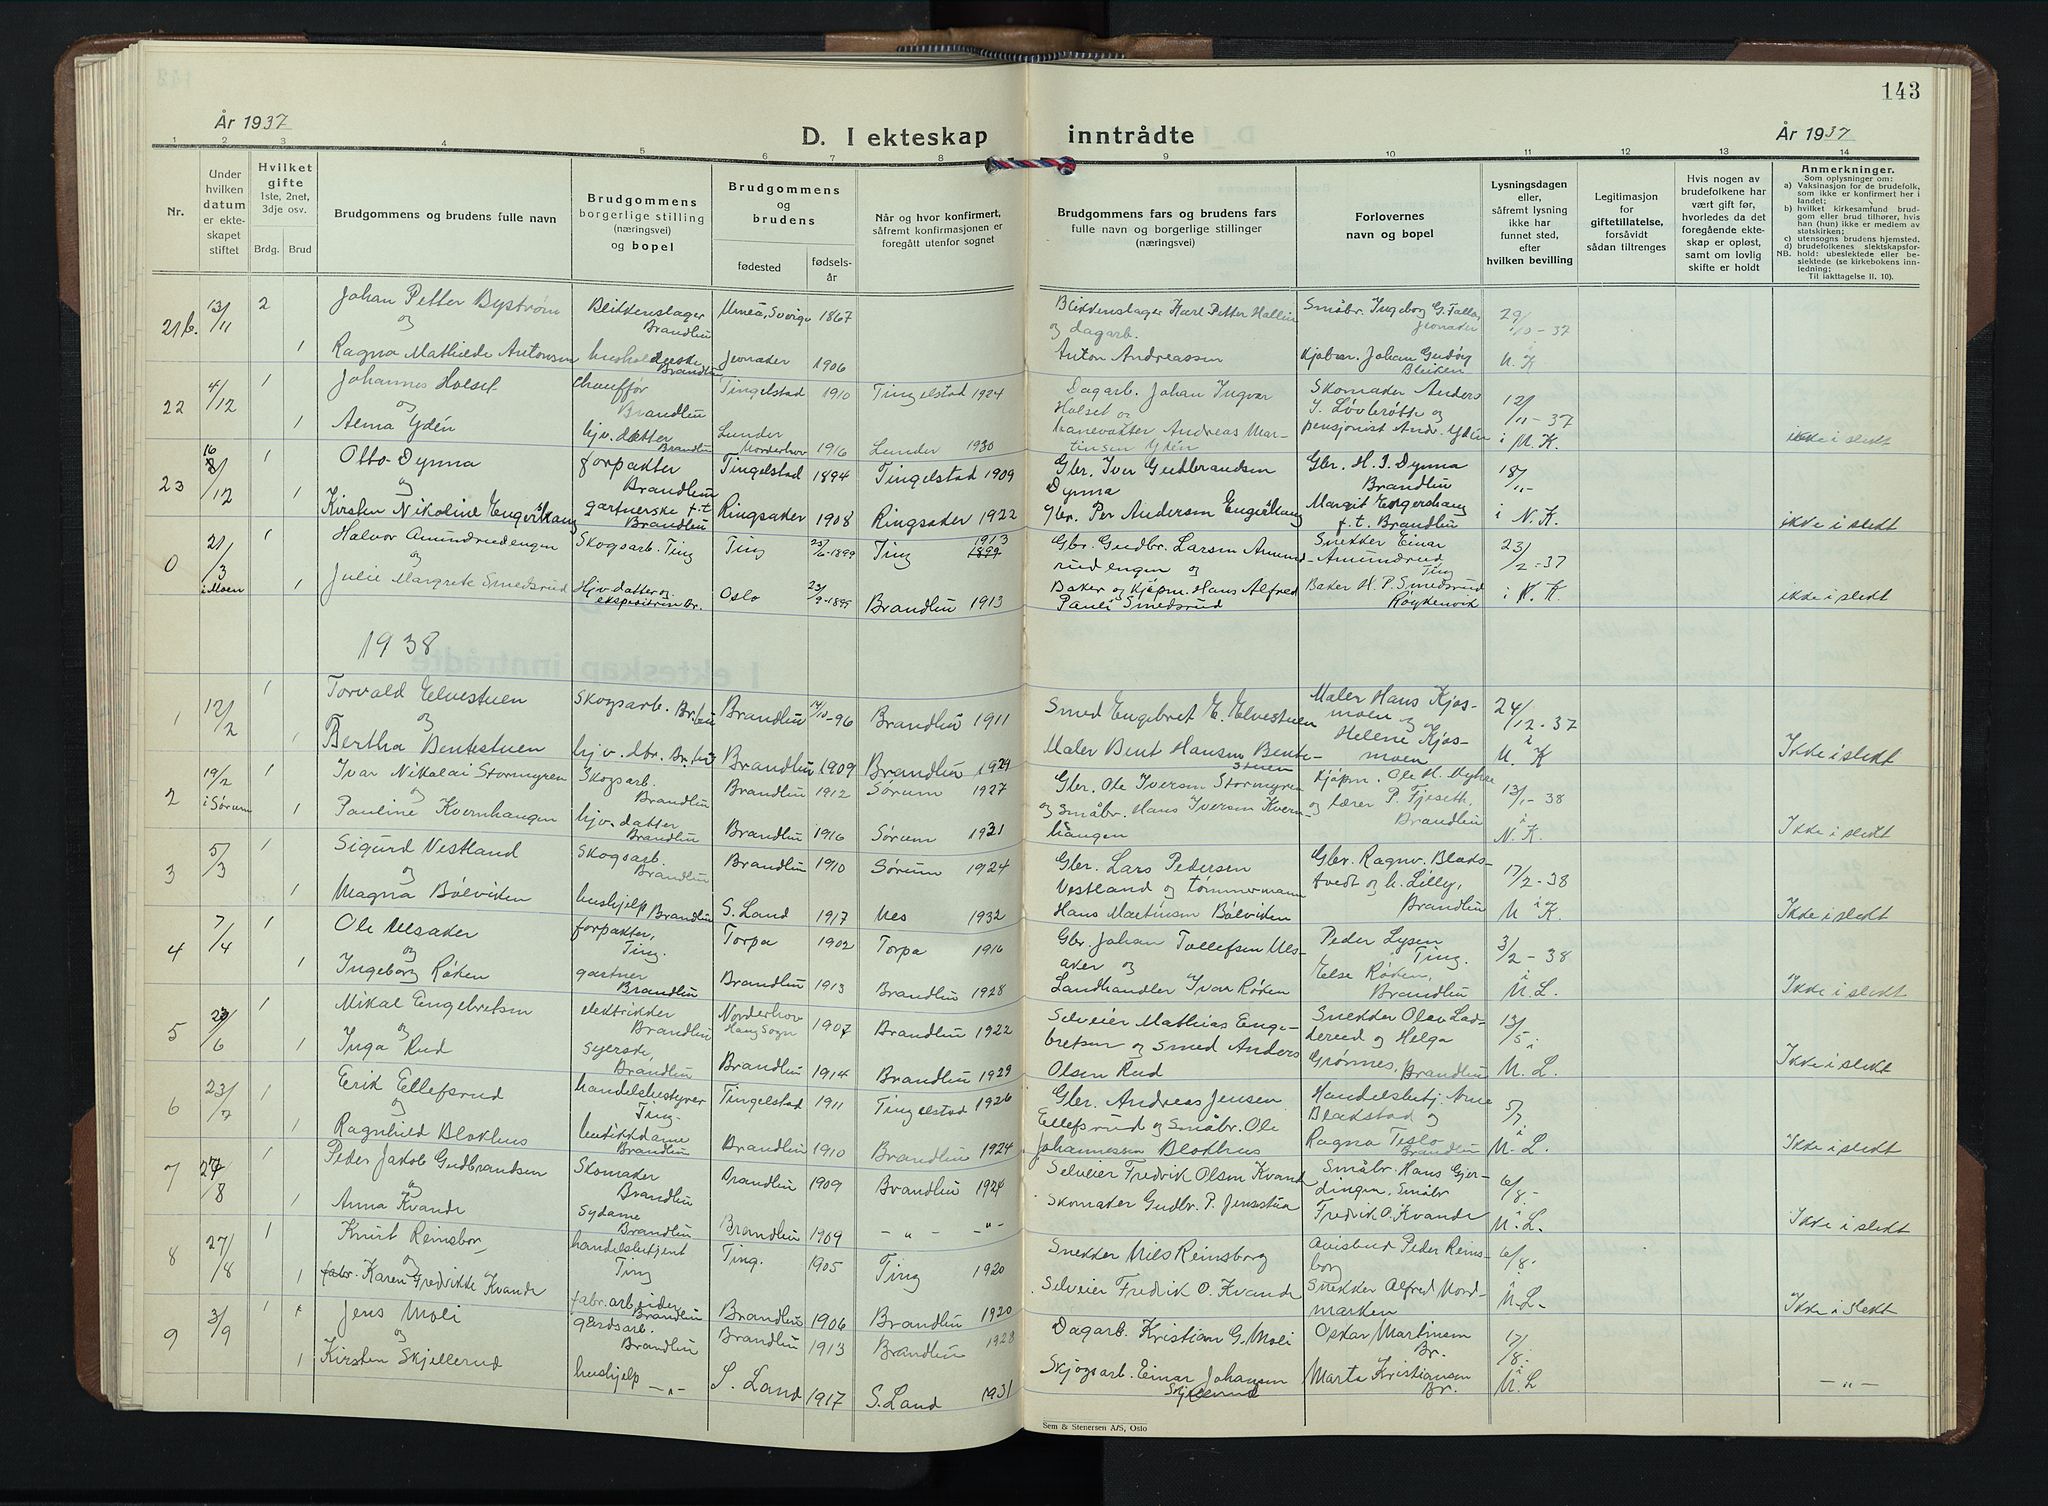 143
År 1937
D. I ekteskap inntrådte
År 1937
1 2 3 4 5 6 7 8 9 10 11 12 13 14
Nr.
Under hvilken datum er ekteskapet stiftet
Hvilket gifte 1ste, 2net, 3dje osv.
Brdg. Brud
Brudgommens og brudens fulle navn
Brudgommens borgerlige stilling (næringsvei) og bopel
Brudgommens og brudens
fødested fødselsår
Når og hvor konfirmert, såfremt konfirmasjonen er foregått utenfor sognet
Brudgommens fars og brudens fars fulle navn og borgerlige stillinger (næringsvei)
Forlovernes navn og bopel
Lysningsdagen eller, såfremt lysning ikke har funnet sted, efter hvilken bevilling
Legitimasjon for giftetillatelse, forsåvidt sådan tiltrenges
Hvis nogen av brudefolkene har vært gift før, hvorledes da det foregående ekteskap er opløst, samt om lovlig skifte er holdt
Anmerkninger.
Som oplysninger om:
a) Vaksinasjon for de brudefolk, som ikke er konfirmert her i landet;
b) hvilket kirkesamfund brudgom eller brud tilhører, hvis han (hun) ikke er medlem av statskirken;
c) utensogns brudens hjemsted.
d) brudefolkenes slektskapsforhold: ubeslektede eller beslektede (se kirkebokens innledning;
NB. Til iakttagelse II. 10).
21b. 13/11 2 Johan Petter Byström Blikkenslager Brandbu Umeå, Sverige 1867 Blikkenslager Karl Petter Hallin Småbr. Ingeborg G. Falla, Jevnaker 29/10-37
og og dagarb.
1 Ragna Mathilde Antonsen husholderske Brandbu Jevnaker 1906 Anton Andreassen Kjøbm. Johan Gudbrg Bleiken i N. K
22 4/12 1 Johannes Holset chauffør Brandbu Tingelstad 1910 Tingelstad 1924 Dagarb. Johan Ingvar Holset og Skomaker Anders J. Løvbrøtte og 12/11-37
og
1 Alma Ydén hjv. datter Brandbu Lunder Norderhov 1916 Lunder 1930 banevokter Andreas Martinsen Ydén pensjonist Andr. Ydén i N. K. ikke i slekt
23 16/12 1 Otto Dynna forpakter Brandbu Tingelstad 1894 Tingelstad 1909 Gbr. Iver Gudbrandsen Dynna Gbr. H. I. Dynna Brandbu 18/11-
og
1 Kirsten Nikoline Engershaug gartnerske f.t. Brandbu Ringsaker 1908 Ringsaker 1922 Gbr. Per Andersen Engershaug Margit Engershaug f.t. Brandbu i N. K. ikke i slekt
0 21/3 i Moen 1 Halvor Amundrudengen Skogsarb. Ting Ting 25/6-1899 Ting 1913 1899 Gbr. Gudbr. Larsen Amundrudengen og Snekker Einar Amundrud Ting 23/2-37
og
1 Julie Margrete Smedsrud Hjv datter og ekspeditrise Br. Oslo 23/9-1899 Brandbu 1913 Baker og Kjøpm. Hans Alfred Pauli Smedsrud Baker H. P. Smedsrud Røykenvik i N. K. ikke i slekt
1938
1 12/2 1 Torvald Elvestuen Skogsarb. Br.bu Brandbu 14/10-96 Brandbu 1911 Smed Engebret E. Elvestuen Maler Hans Kjosmoen og 24/12-37
og
1 Bertha Bentestuen hjv. dtr. Br.bu Brandbu 1909 Brandbu 1924 Maler Bent Hansen Bentestuen Helene Kjosmoen i N. K Ikke i slekt
2 19/2 i Sørum 1 Ivar Nikolai Stormyren Skogsarb. Brandbu Brandbu 1912 Sørum 1927 Gbr. Ole Iversen Stormyren Kjøpm. Ole H. Myhre 13/1-38
og
1 Pauline Kvernhaugen hjv. datter Brandbu Brandbu 1916 Sørum 1931 og Småbr. Hans Iversen Kvernhaugen og lærer P. Fjeseth, Brandbu i N. K. Ikke i slekt
3 5/3 1 Sigurd Vestland Skogsarb. Brandbu Brandbu 1910 Sørum 1924 Gbr. Lars Pedersen Vestland og tømmermann Gbr. Ragnv. Bladstvedt og h. Lilly, Brandbu 17/2-38
og
1 Magna Bølviken hushjelp Brandbu S. Land 1917 Nes 1932 Hans Martinsen Bølviken i N. K. Ikke i slekt
4 7/4 1 Ole Ulsaker forpakter, Ting. Torpa 1902 Torpa 1916 Gbr. Johan Tollefsen Ulsaker og Peder Lysen Ting. 3/2-38
og
1 Ingeborg Røken gartner Brandbu Brandbu 1913 Brandbu 1928 Landhandler Ivar Røken Else Røken, Brandbu i N. L. Ikke i slekt
5 29/6 1 Mikal Engebretsen elektrikker Brandbu Norderhov Haug Sogn 1907 Brandbu 1922 Selveier Mathias Engebretsen og Smed Anders Snekker Olav Ladderud og Helga 13/5-
og
1 Inga Rud syerske, Brandbu Brandbu 1914 Brandbu 1929 Olsen Rud Grønnes, Brandbu i N. L. Ikke i slekt
6 23/7 1 Erik Ellefsrud handelsbestyrer Ting. Tingelstad 1911 Tingelstad 1926 Gbr. Andreas Jensen Ellefsrud og Småbr. Ole Handelsbetj. Arne Bladstad og 5/7
og
1 Ragnhild Blokhus butikkdame Brandbu Brandbu 1910 Brandbu 1924 Johannessen Blokhus Ragna Teslo Brandbu i N. L. Ikke i slekt
7 27/8 1 Peder Jakob Gudbrandsen Skomaker Brandbu Brandbu 1909 Brandbu 1924 Selveier Fredrik Olsen Kvande Småbr. Hans Gjerdingen, Småbr 6/8-
og
1 Anna Kvande Sydame Brandbu Brandbu 1909 - " - - " - Skomaker Gudbr. P. Jensstua Fredrik O. Kvande i N. L. Ikke i slekt
8 27/8 1 Knut Reinsborg handelsbetjent Ting Ting. 1905 Ting 1920 Snekker Nils Reinsborg Avisbud Peder Reinsborg 6/8-
og
1 fabr. Karen Fredrikke Kvande fabr. arbeider Brandbu Brandbu 1906 Brandbu 1920 Selveier Fredrik O. Kvande Snekker Alfred Nordmarken i N. L. Ikke i slekt
9 3/9 1 Jens Moli gårdsarb. Brandbu Brandbu 1913 Brandbu 1928 Dagarb. Kristian G. Moli Oskar Martinsen Br. 17/8-
og
1 Kirsten Skjellerud hushjelp - " - S. Land 1917 S. Land 1931 Skogsarb. Einar Johansen Skjellerud Marte Kristiansen Br. i N. L - " -
Sem & Stenersen A/S, Oslo